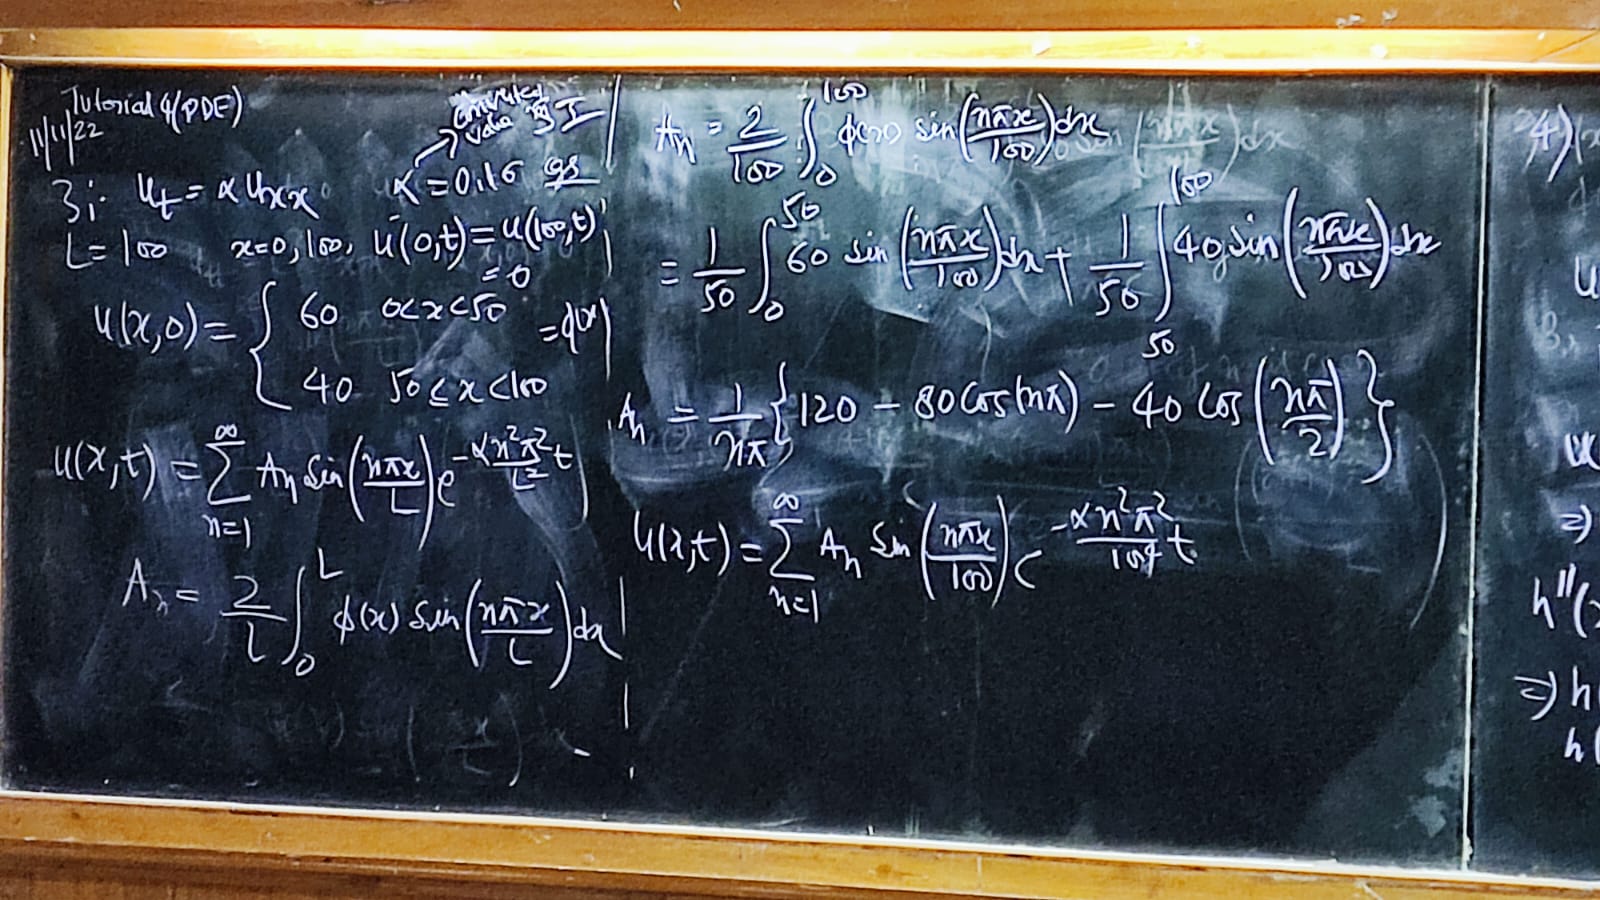 Tutorial 4 (PDE)
11/11/22
converted value in SI
3: u_t = α u_xx α = 0.16 gs
L = 100 x=0, 100, u(0,t) = u(100,t) = 0
u(x,0) = { 60 0<x<50
40 50≤x<100 = φ(x)
u(x,t) = ∑_{n=1}^{∞} A_n Sin(nπx/L) e^{-αn²π²/L² t}
A_n = 2/L ∫_0^L φ(x) Sin(nπx/L) dx
A_n = 2/100 ∫_0^{100} φ(x) sin(nπx/100) dx
= 1/50 ∫_0^{50} 60 sin(nπx/100) dx + 1/50 ∫_{50}^{100} 40 sin(nπx/100) dx
A_n = 1/nπ {120 - 80 Cos(nπ) - 40 Cos(nπ/2)}
u(x,t) = ∑_{n=1}^{∞} A_n Sin(nπx/100) e^{-αn²π²/10⁴ t}
4)
u
u
⇒)
h''(
⇒) h(
h(